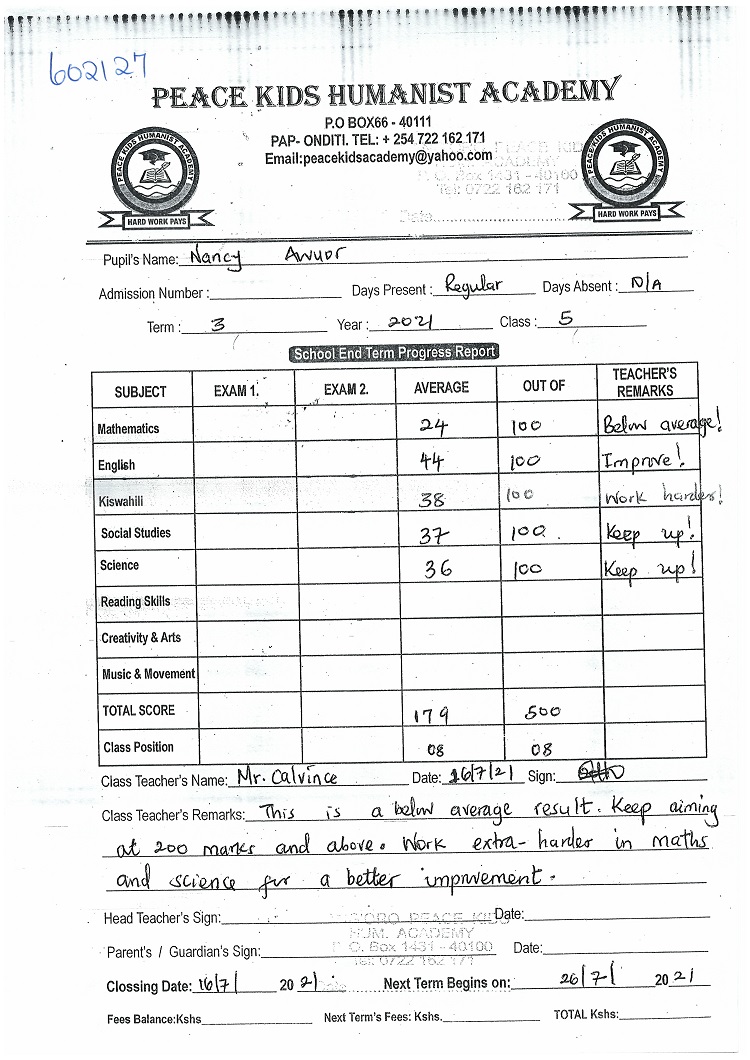 602127
PEACE KIDS HUMANIST ACADEMY
P.O BOX66 - 40111
PAP- ONDITI. TEL: + 254 722 162 171
Email:peacekidsacademy@yahoo.com
PEACE KIDS HUMANIST ACADEMY
HARD WORK PAYS
PEACE KIDS HUMANIST ACADEMY
HARD WORK PAYS
PEACE KID
ACADEMY
P. O. Box 1431 - 40100
Tel: 0722 162 171
Date
Pupil's Name: Nancy Awuor
Admission Number : Days Present : Regular Days Absent : N/A
Term : 3 Year : 2021 Class : 5
School End Term Progress Report
SUBJECT EXAM 1. EXAM 2. AVERAGE OUT OF TEACHER'S REMARKS
Mathematics 24 100 Below average!
English 44 100 Improve!
Kiswahili 38 100 Work harder!
Social Studies 37 100 Keep up!
Science 36 100 Keep up!
Reading Skills
Creativity & Arts
Music & Movement
TOTAL SCORE 179 500
Class Position 08 08
Class Teacher's Name: Mr. Calvince Date: 16/7/21 Sign:
Class Teacher's Remarks: This is a below average result. Keep aiming
at 200 marks and above. Work extra-harder in maths
and science for a better improvement.
Head Teacher's Sign: Date:
PEACE KIDS
HUM. ACADEMY
Parent's / Guardian's Sign: Date:
P. O. Box 1431 - 40100
Tel: 0722 162 171
Clossing Date: 16/7/ 2021 Next Term Begins on: 26/7/ 2021
Fees Balance:Kshs Next Term's Fees: Kshs. TOTAL Kshs: